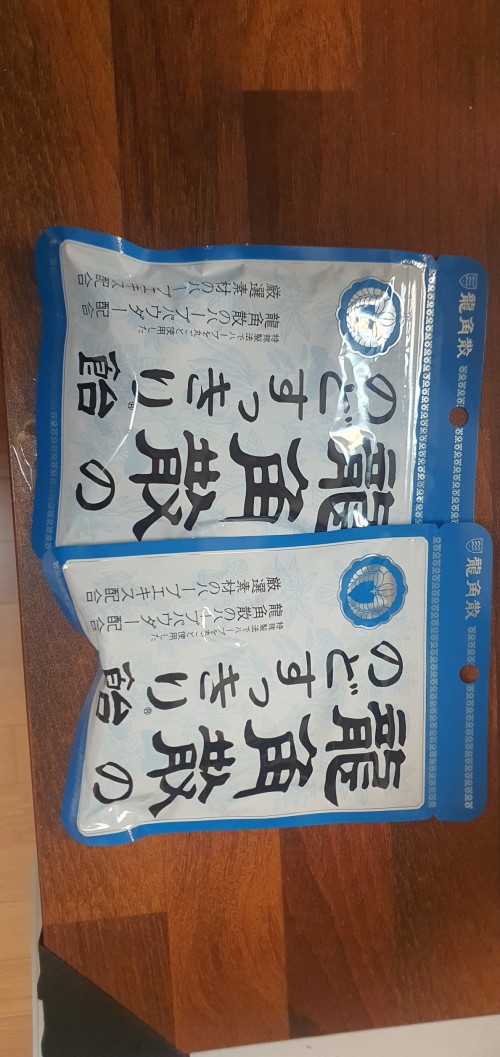 龍角散
龍角散の
のどすっきり®飴
特殊製法でハーブを丸ごと使用した
龍角散のハーブパウダー配合
厳選素材のハーブエキス配合
龍角散
龍角散の
のどすっきり®飴
特殊製法でハーブを丸ごと使用した
龍角散のハーブパウダー配合
厳選素材のハーブエキス配合